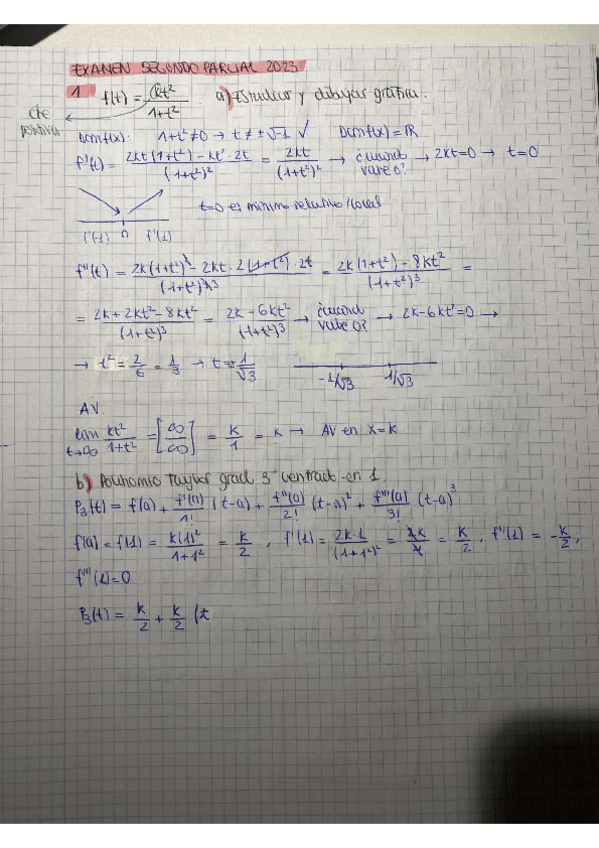 EXAMEN SEGUNDO PARCIAL 2023
1 f(t) = kt²/(1+t²) . a) Estudiar y dibujar gráfica.
cte positiva
Dom f(x): 1+t² ≠ 0 → t ≠ ±√-1 ✓ Dom f(x) = ℝ
f'(t) = (2kt(1+t²) - kt²·2t)/(1+t²)² = 2kt/(1+t²)² → ¿cuándo vale 0? → 2kt=0 → t=0
t=0 es mínimo relativo/local
f'(-1) 0 f'(1)
f''(t) = (2k(1+t²)² - 2kt·2(1+t²)·2t)/(1+t²)⁴³ = (2k(1+t²) - 8kt²)/(1+t²)³ =
= (2k+2kt²-8kt²)/(1+t²)³ = (2k-6kt²)/(1+t²)³ → ¿cuándo vale 0? → 2k-6kt²=0 →
→ t² = 2/6 = 1/3 → t = ±1/√3 -1/√3 1/√3
AV.
lim t→∞ kt²/(1+t²) = [∞/∞] = k/1 = k → AV en x=k
b) Polinomio Taylor grad 3 centrado en 1.
P₃(t) = f(a) + f'(a)/1! (t-a) + f''(a)/2! (t-a)² + f'''(a)/3! (t-a)³
f(a) = f(1) = k(1)²/(1+1²) = k/2 , f'(1) = 2k·1/(1+1²)² = 2k/4 = k/2 , f''(1) = -k/2 ;
f'''(1)=0
P₃(t) = k/2 + k/2 (t